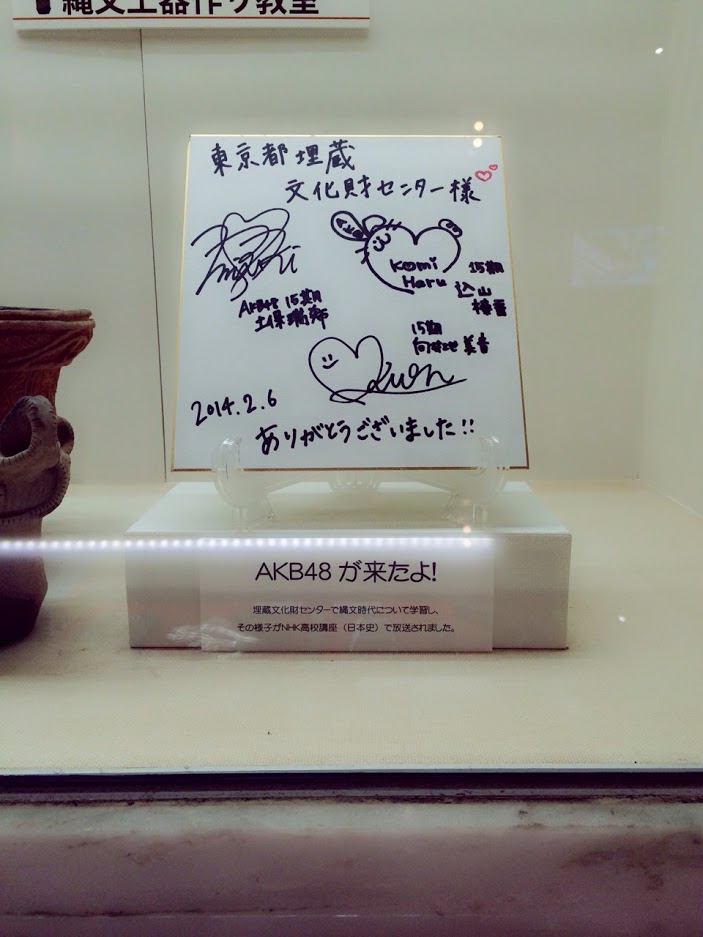 縄文土器作り教室
東京都埋蔵
文化財センター様
AKB
Komi
Haru
15期
込山
榛香
AKB48 15期
土保瑞希
15期
向井地 美音
2014.2.6
ありがとうございました!!
AKB48 が来たよ!
埋蔵文化財センターで縄文時代について学習し、
その様子がNHK高校講座（日本史）で放送されました。